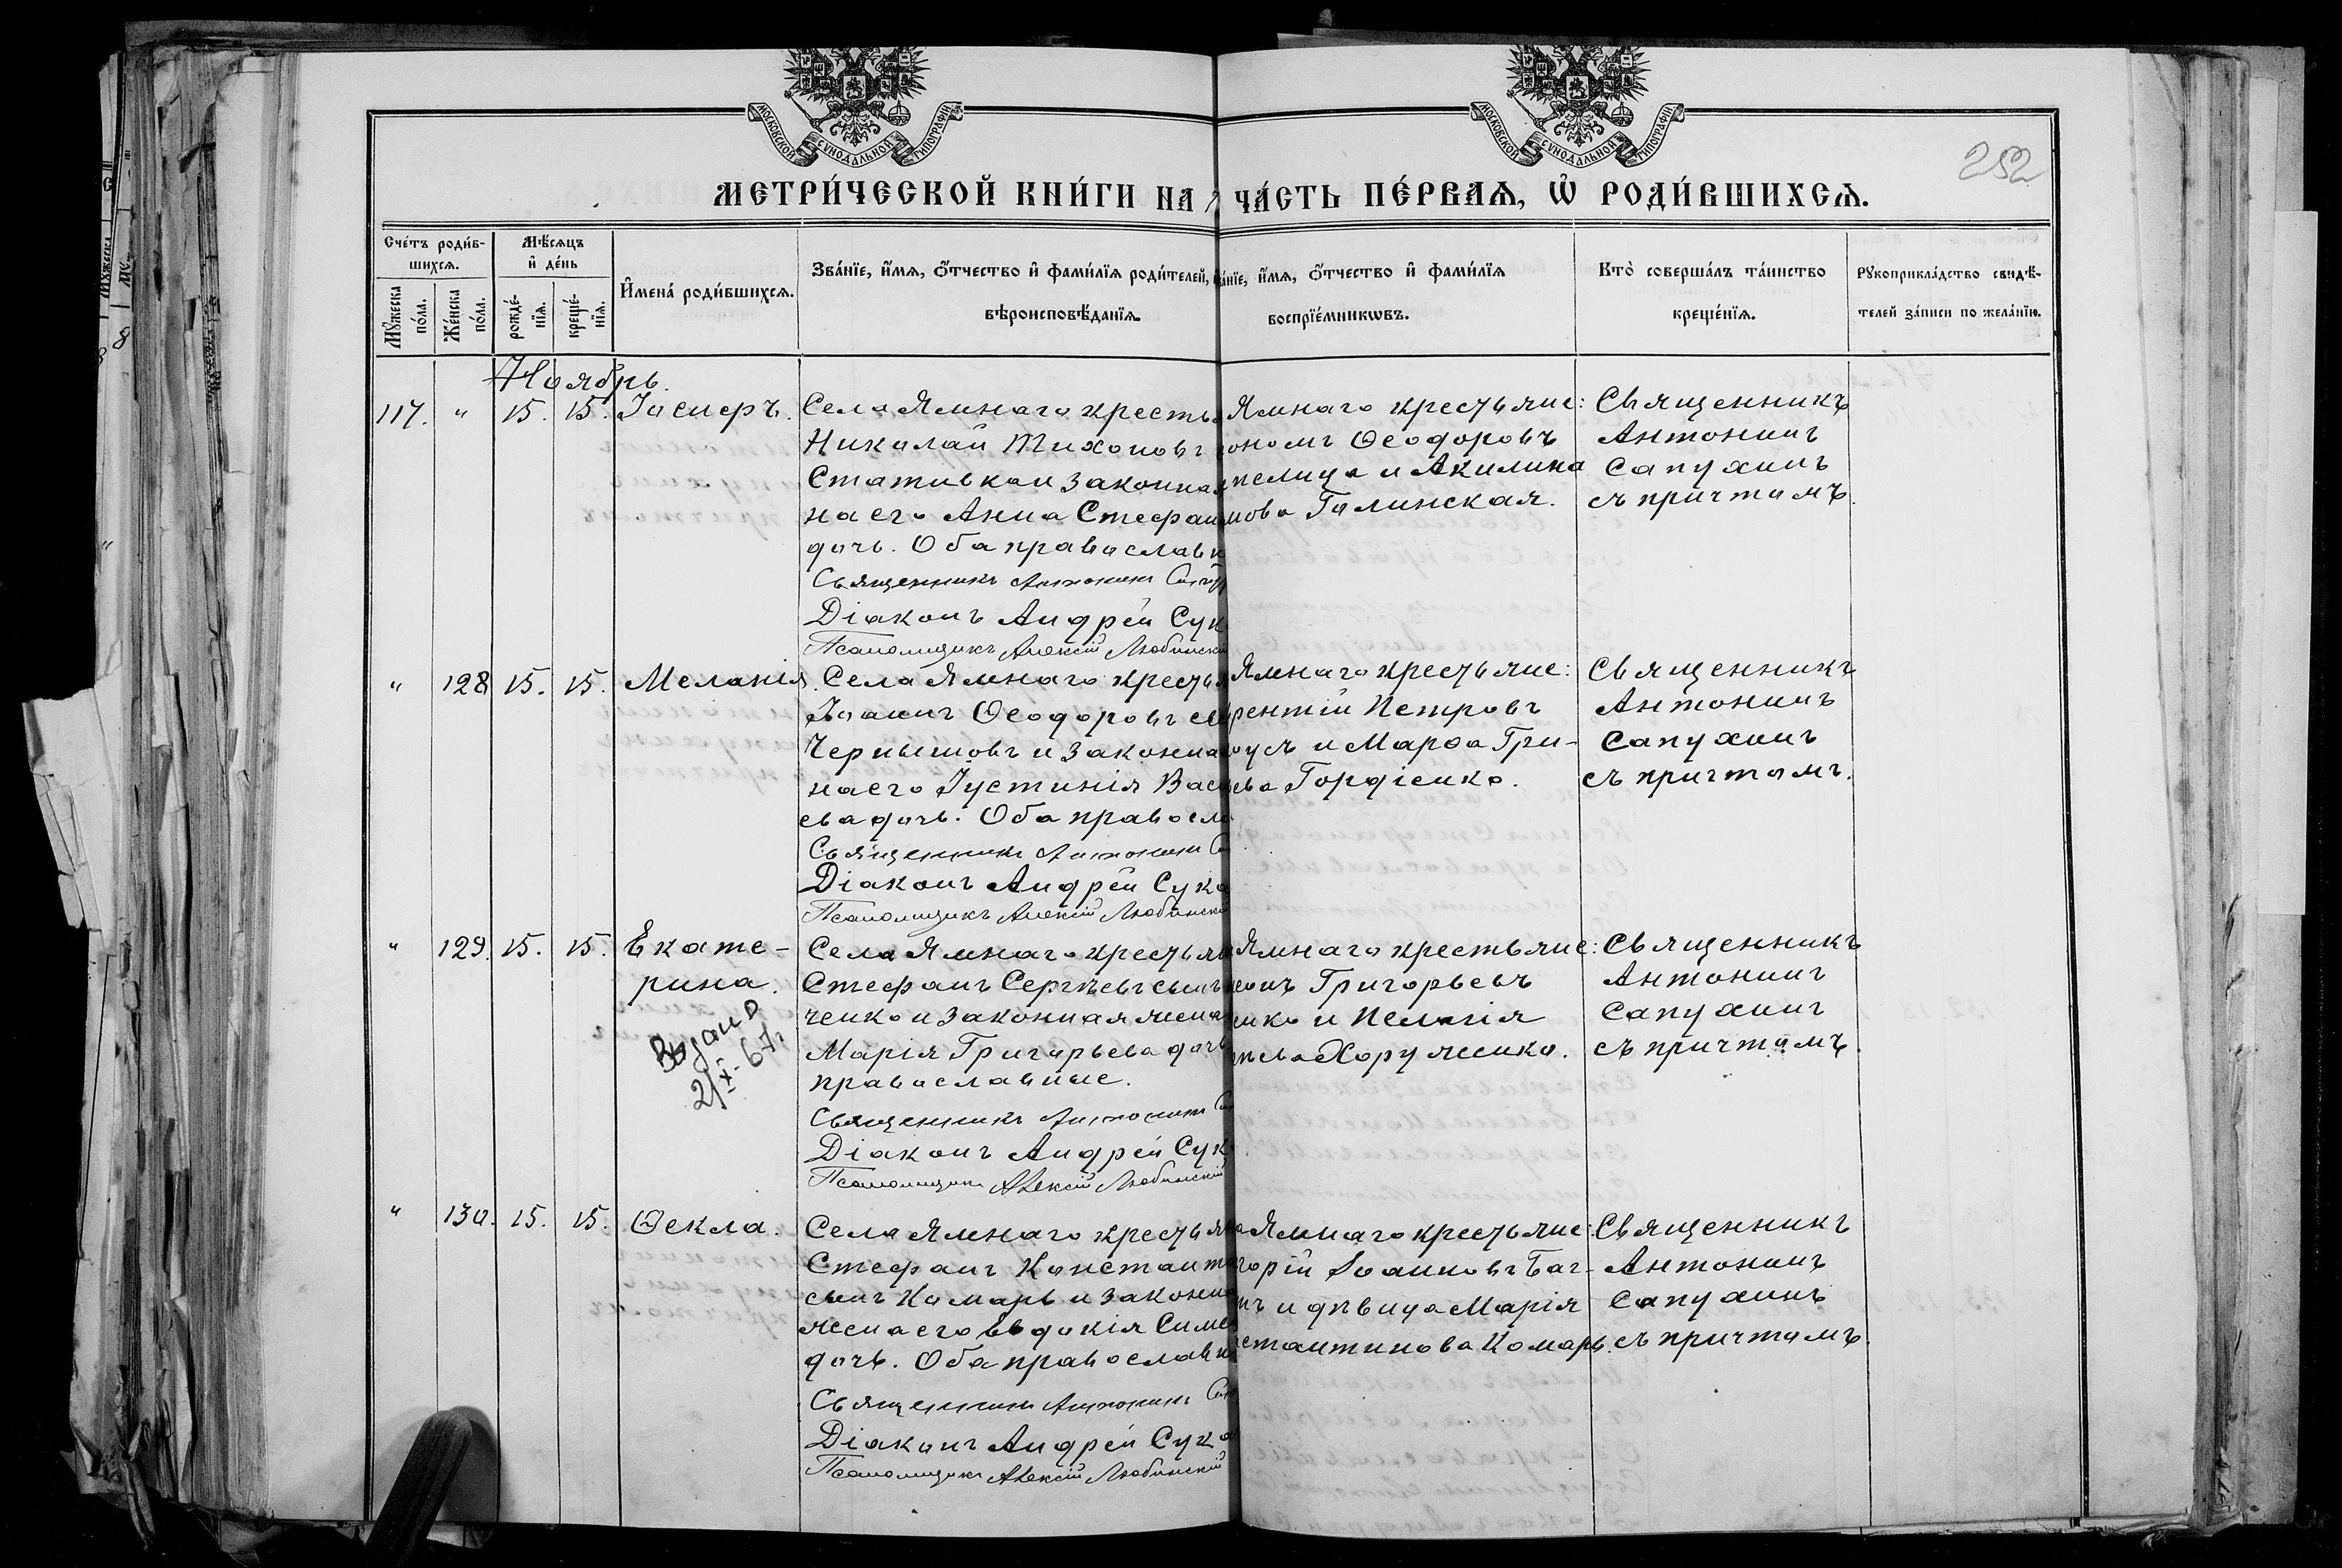 МОСКОВСКОЙ СУНОДАЛЬНОЙ ТИПОГРАФІИ
МОСКОВСКОЙ СУНОДАЛЬНОЙ ТИПОГРАФІИ
252
МЕТРИ́ЧЕСКОЙ КНИ́ГИ НА
ЧА́СТЬ ПЕ́РВАѦ, Ѡ҆ РОДИ́ВШИХСѦ.
Сче́тъ роди́в-
шихсѧ.
Мꙋ́жеска по́ла.
Же́нска по́ла.
Мѣ́сѧцъ
и҆ де́нь
рожде́-
нїѧ.
креще́-
нїѧ.
И҆мена̀ роди́вшихсѧ.
Зва́нїе, и҆́мѧ, ѻ҆́тчество и҆ фами́лїѧ роди́телей,
вѣроисповѣ́данїѧ
и҆́мѧ, ѻ҆́тчество и҆ фами́лїѧ
воспрїе́мникѡвъ.
Кто̀ соверша́лъ та́инство
креще́нїѧ.
Рꙋкоприкла́дство свидѣ́-
телей за́писи по жела́нїю.
Ноябрь.
117. " 15. 15.
Села Ямнаго кресть
Николай Тихоновъ
Стативка и законная
на его Анна Стефан
дочь. Оба православн
Священникъ Антонинъ
Діаконъ Андрей Сук
Псаломщикъ Алексій Любинскій
Ямнаго крестьяне:
Ѳеодоровъ
и Акилина
Галинская.
Священникъ
Антонинъ
Сапухинъ
съ причтомъ.
" 128 15. 15. Меланія.
Села Ямнаго крестья
Іоаннъ Ѳеодоровъ
Чернышовъ и законна
на его Іустинія Вас
ева дочь. Оба правосл
Священникъ Антонинъ
Діаконъ Андрей Сука
Псаломщикъ Алексій Любинскій
Ямнаго крестьяне:
рентій Петровъ
усъ и Марѳа Гри-
ева Гордіенко.
Священникъ
Антонинъ
Сапухинъ
съ причтомъ.
" 129. 15. 15. Екате-
рина.
Выдано
Села Ямнаго крестьян
Стефанъ Сергѣевъ сынъ
ченко и законная жена
Марія Григорьева дочь
православные.
Священникъ Антонинъ
Діаконъ Андрей Сук
Псаломщикъ Алексій Любинскій
Ямнаго крестьяне:
Григорьевъ
енко и Пелагія
Хоруженко.
Священникъ
Антонинъ
Сапухинъ
съ причтомъ.
" 130. 15. 15. Ѳекла.
Села Ямнаго крестьян
Стефанъ Константи
сынъ Комарь и законн
жена его Евдокія Симе
дочь. Оба православн
Священникъ Антонинъ
Діаконъ Андрей Сука
Псаломщикъ Алексій Любинскій
Ямнаго крестьяне:
горій Іоанновъ Баг-
и дѣвица Марія
стантинова Комарь.
Священникъ
Антонинъ
Сапухинъ
съ причтомъ.